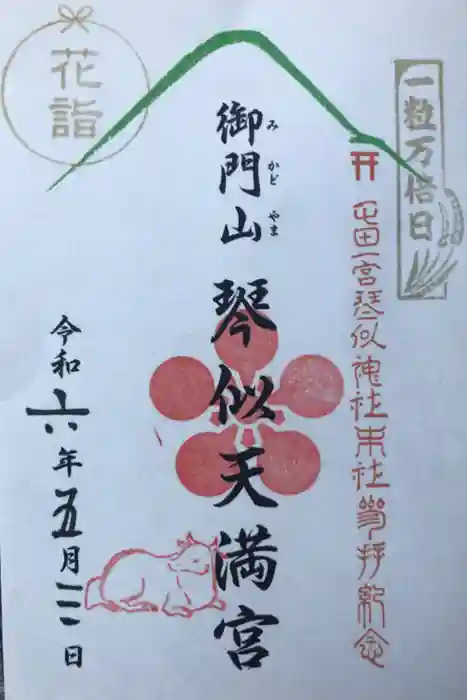 一粒万倍日
屯田一宮琴似神社末社参拝紀念
御門山 琴似天満宮
み かど やま
花詣
令和六年五月三日